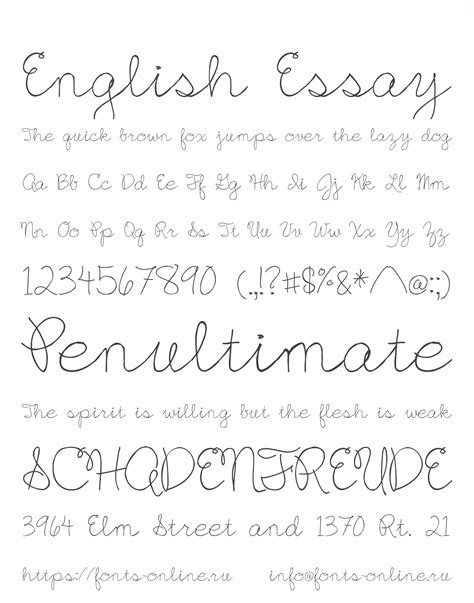 English Essay
The quick brown fox jumps over the lazy dog
Aa Bb Cc Dd Ee Ff Gg Hh Ii Jj Kk Ll Mm
Nn Oo Pp Qq Rr Ss Tt Uu Vv Ww Xx Yy Zz
1234567890 (.,!?#$%&*/\@:;)
Penultimate
The spirit is willing but the flesh is weak
SCHADENFREUDE
3964 Elm Street and 1370 Rt. 21
https://fonts-online.ru info@fonts-online.ru